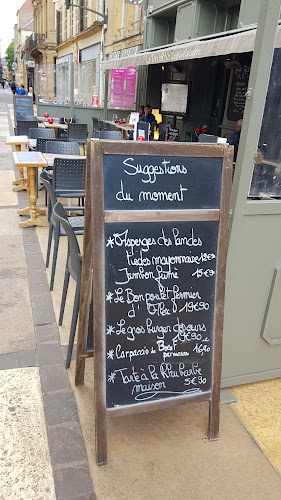 Suggestions
du moment
* Asperges des landes
tièdes mayonnaise 12€
Jambon fumé 15€90
* Le Bon poulet fermier
d'Olée 19€90
* Le gros burger des ours
19€90
* Carpaccio de Bœuf 16€90
parmesan
* Tarte à la Rhubarbe
maison 5€90